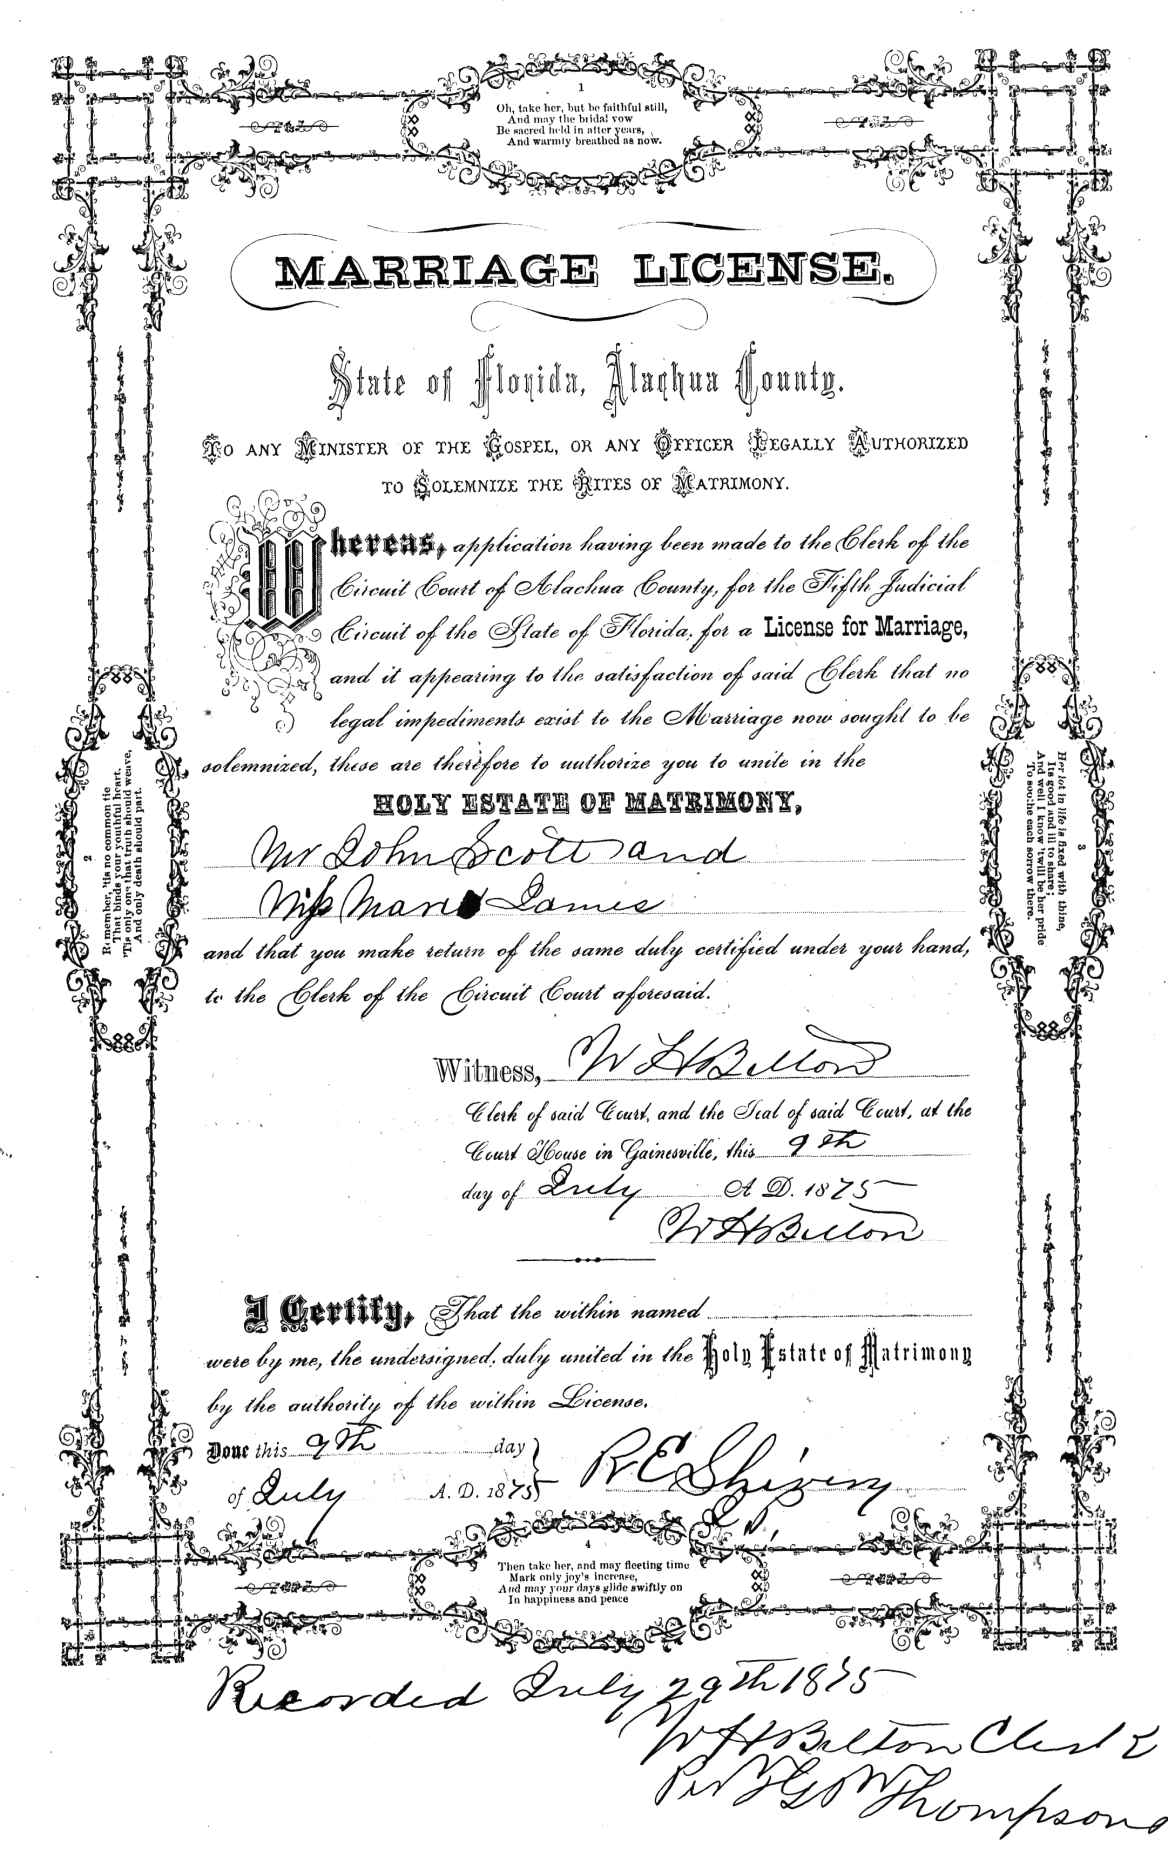 1
Oh, take her, but be faithful still,
And may the bridal vow
Be sacred held in after years,
And warmly breathed as now.
MARRIAGE LICENSE.
State of Florida, Alachua County.
TO ANY MINISTER OF THE GOSPEL, OR ANY OFFICER LEGALLY AUTHORIZED
TO SOLEMNIZE THE RITES OF MATRIMONY.
Whereas, application having been made to the Clerk of the
Circuit Court of Alachua County, for the Fifth Judicial
Circuit of the State of Florida, for a License for Marriage,
and it appearing to the satisfaction of said Clerk that no
legal impediments exist to the Marriage now sought to be
solemnized, these are therefore to authorize you to unite in the
HOLY ESTATE OF MATRIMONY,
Mr John Scott and
Miss James
and that you make return of the same duly certified under your hand,
to the Clerk of the Circuit Court aforesaid.
2
Remember, 'tis no common tie
That binds your youthful heart,
'Tis only one that truth should weave,
And only death should part.
3
Her lot in life is fixed with thine,
Its good and ill to share;
And well I know 'twill be her pride
To soothe each sorrow there.
Witness, W H Belton
Clerk of said Court, and the Seal of said Court, at the
Court House in Gainesville, this 9th
day of July A D. 1875
W H Belton
I Certify, That the within named
were by me, the undersigned, duly united in the Holy Estate of Matrimony
by the authority of the within License.
Done this 9th day
of July A. D. 1875
R E Shivery
4
Then take her, and may fleeting time
Mark only joy's increase,
And may your days glide swiftly on
In happiness and peace
Recorded July 29th 1875
W H Belton Clerk
Per Thompson